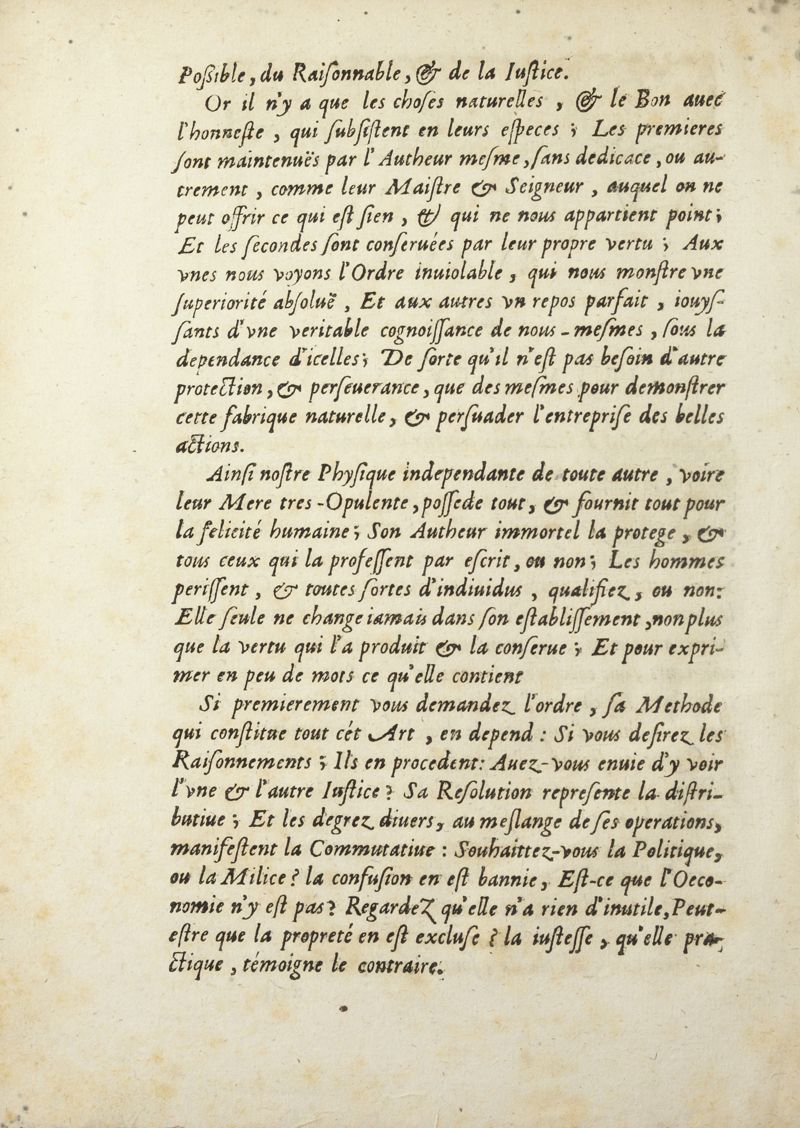 Poßible, du Raiſonnable, & de la Iuſtice.
Or il n'y a que les choſes naturelles, & le Bon auec
l'honneſte, qui ſubſiſtent en leurs eſpeces; Les premieres
ſont maintenuës par l'Autheur meſme, ſans dedicace, ou au-
trement, comme leur Maiſtre & Seigneur, auquel on ne
peut offrir ce qui eſt ſien, & qui ne nous appartient point;
Et les ſecondes ſont conſeruées par leur propre vertu; Aux
vnes nous voyons l'Ordre inuiolable, qui nous monſtre vne
ſuperiorité abſoluë, Et aux autres vn repos parfait, iouyſ-
ſants d'vne veritable cognoiſſance de nous-meſmes, ſous la
dependance d'icelles; De ſorte qu'il n'eſt pas beſoin d'autre
protection, & perſeuerance, que des meſmes pour demonſtrer
cette fabrique naturelle, & perſuader l'entrepriſe des belles
actions.
Ainſi noſtre Phyſique independante de toute autre, voire
leur Mere tres-Opulente, poſſede tout, & fournit tout pour
la felicité humaine; Son Autheur immortel la protege, &
tous ceux qui la profeſſent par eſcrit, ou non; Les hommes
periſſent, & toutes ſortes d'indiuidus, qualifiez, ou non:
Elle ſeule ne change iamais dans ſon eſtabliſſement, non plus
que la vertu qui l'a produit & la conſerue; Et pour expri-
mer en peu de mots ce qu'elle contient
Si premierement vous demandez l'ordre, ſa Methode
qui conſtitue tout cét Art, en depend: Si vous deſirez les
Raiſonnements; Ils en procedent: Auez-vous enuie d'y voir
l'vne & l'autre Iuſtice? Sa Reſolution repreſente la diſtri-
butiue; Et les degrez diuers, au meſlange de ſes operations,
manifeſtent la Commutatiue: Souhaittez-vous la Politique,
ou la Milice? la confuſion en eſt bannie, Eſt-ce que l'Oeco-
nomie n'y eſt pas? Regardez qu'elle n'a rien d'inutile, Peut-
eſtre que la propreté en eſt excluſe? la iuſteſſe, qu'elle pra-
ctique, témoigne le contraire.